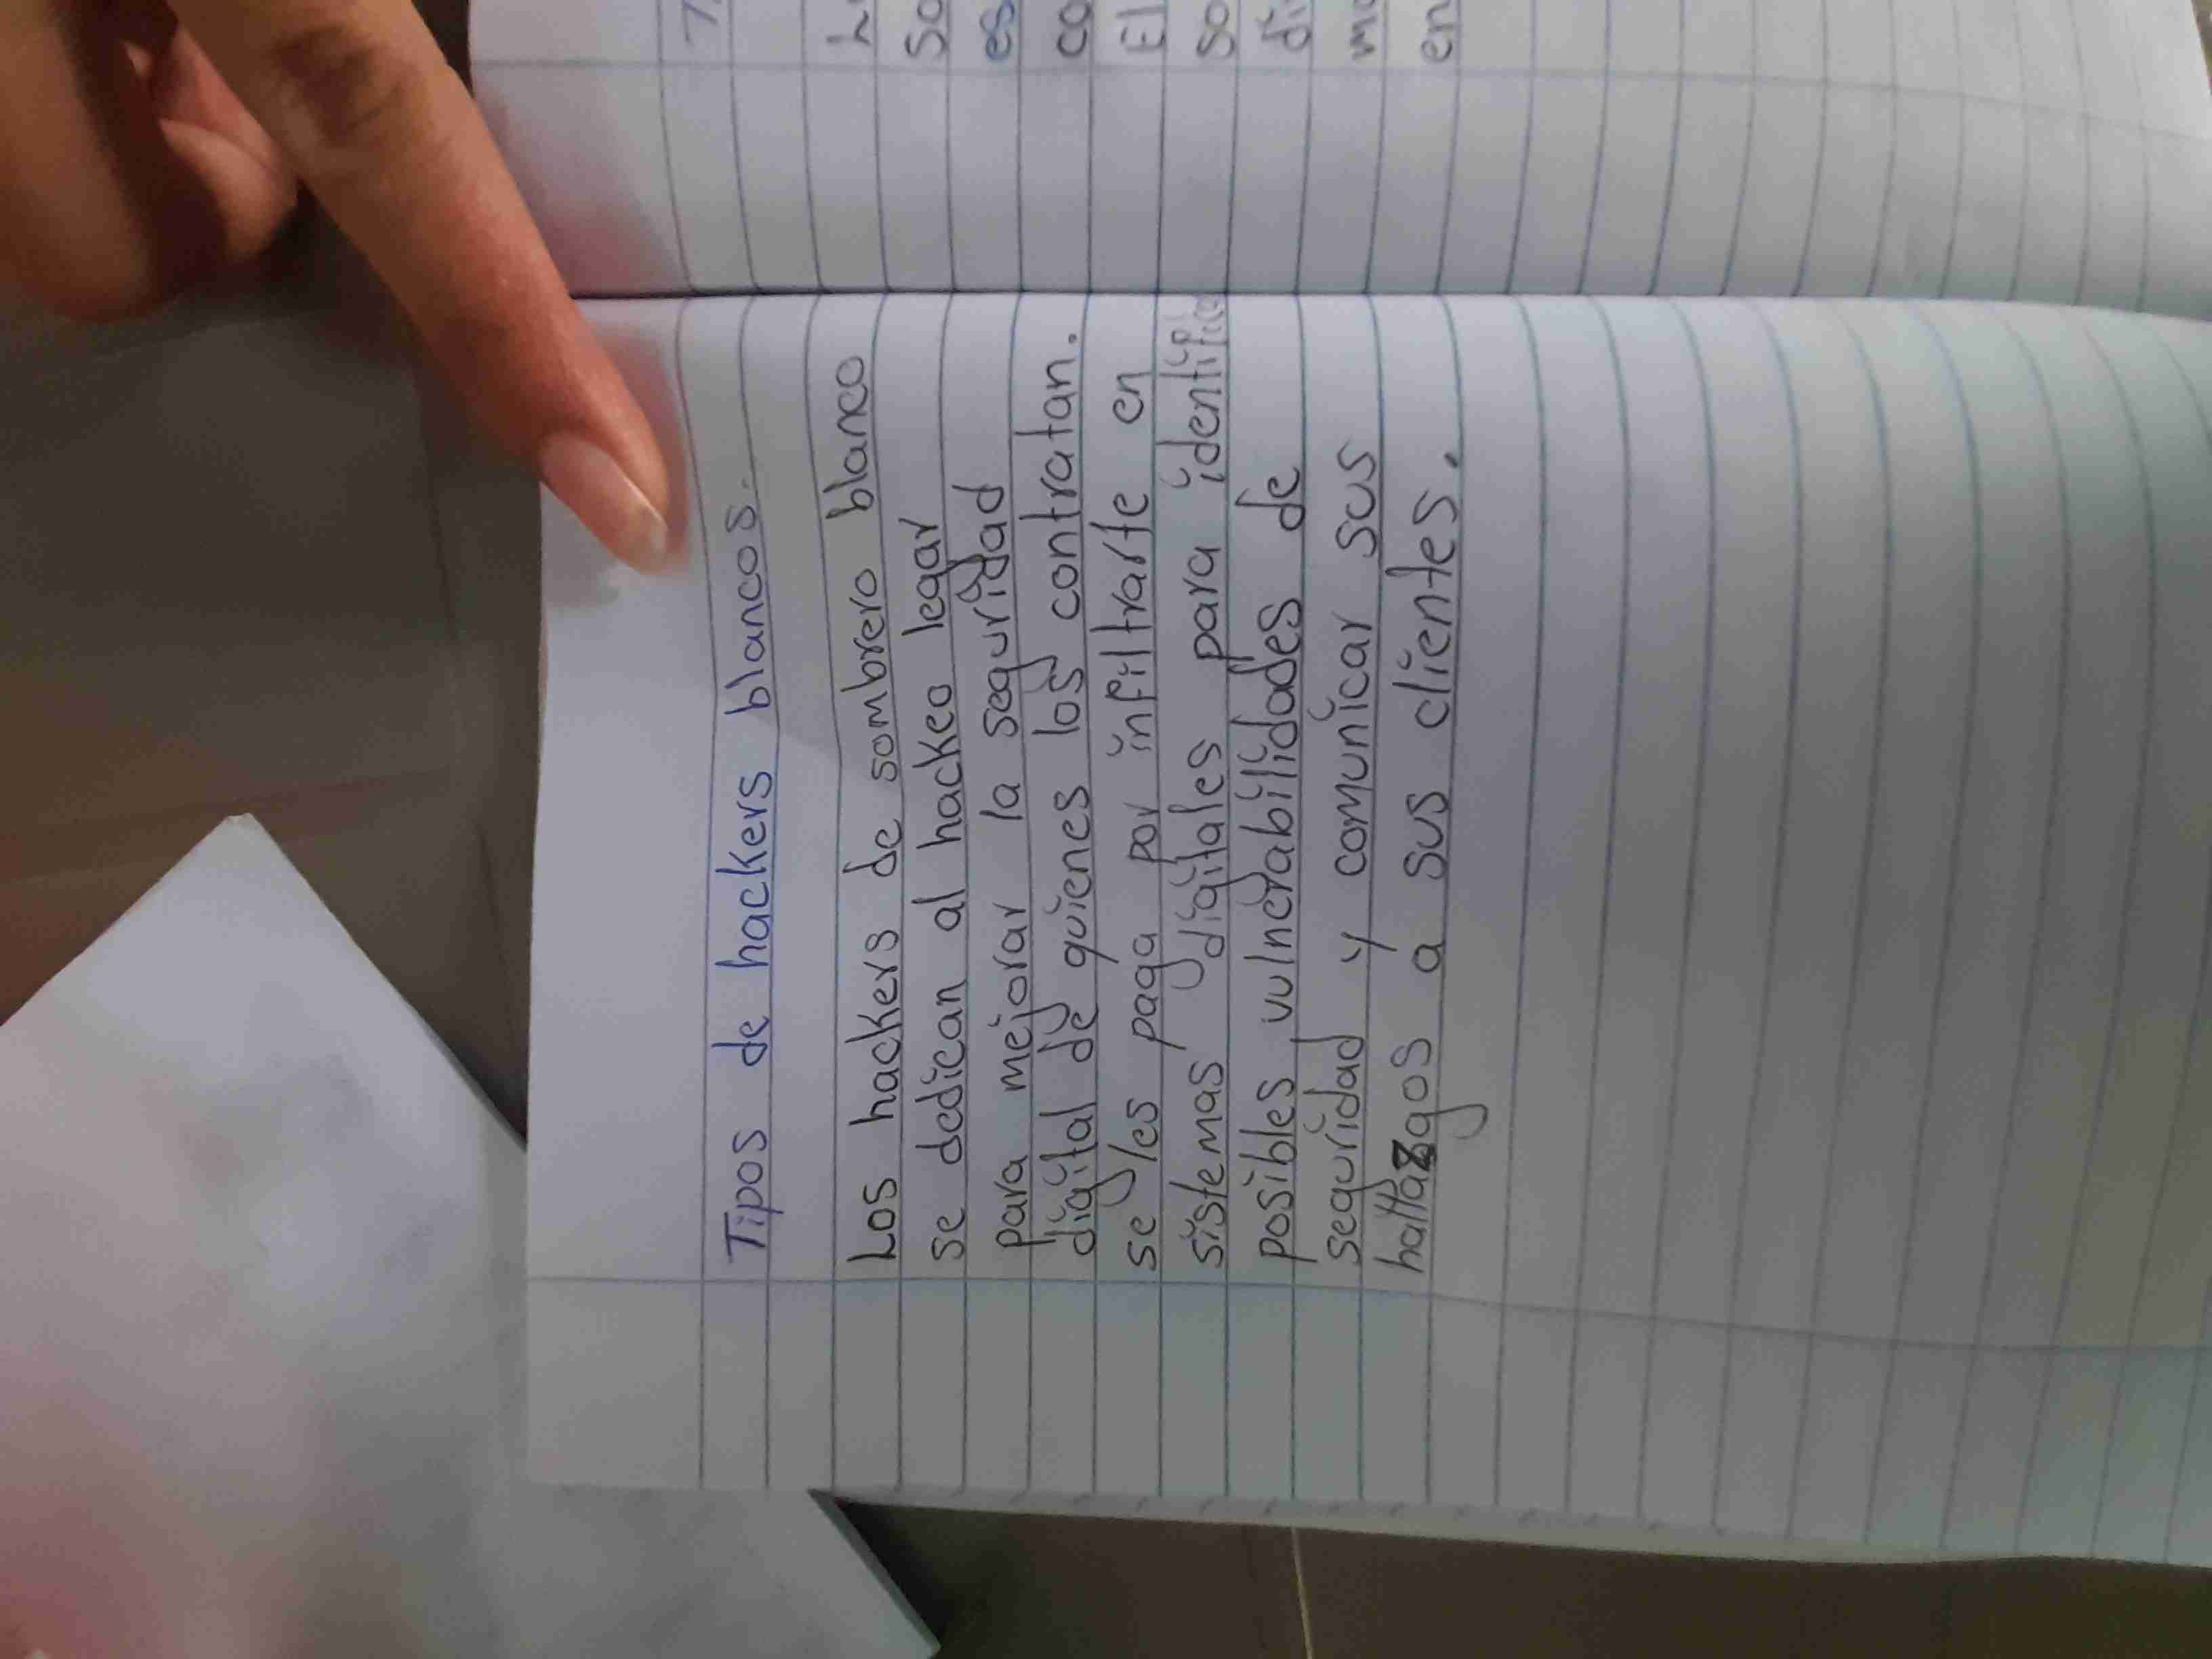 Tipos de hackers blancos.
Los hackers de sombrero blanco
se dedican al hackeo legar
para mejorar la seguridad
digital de quienes los contratan.
se les paga por infiltrarte en
sistemas digitales para identifica
posibles vulnerabilidades de
seguridad y comunicar sus
hallazgos a sus clientes.
T
L
So
es
co
El
so
di
mo
en